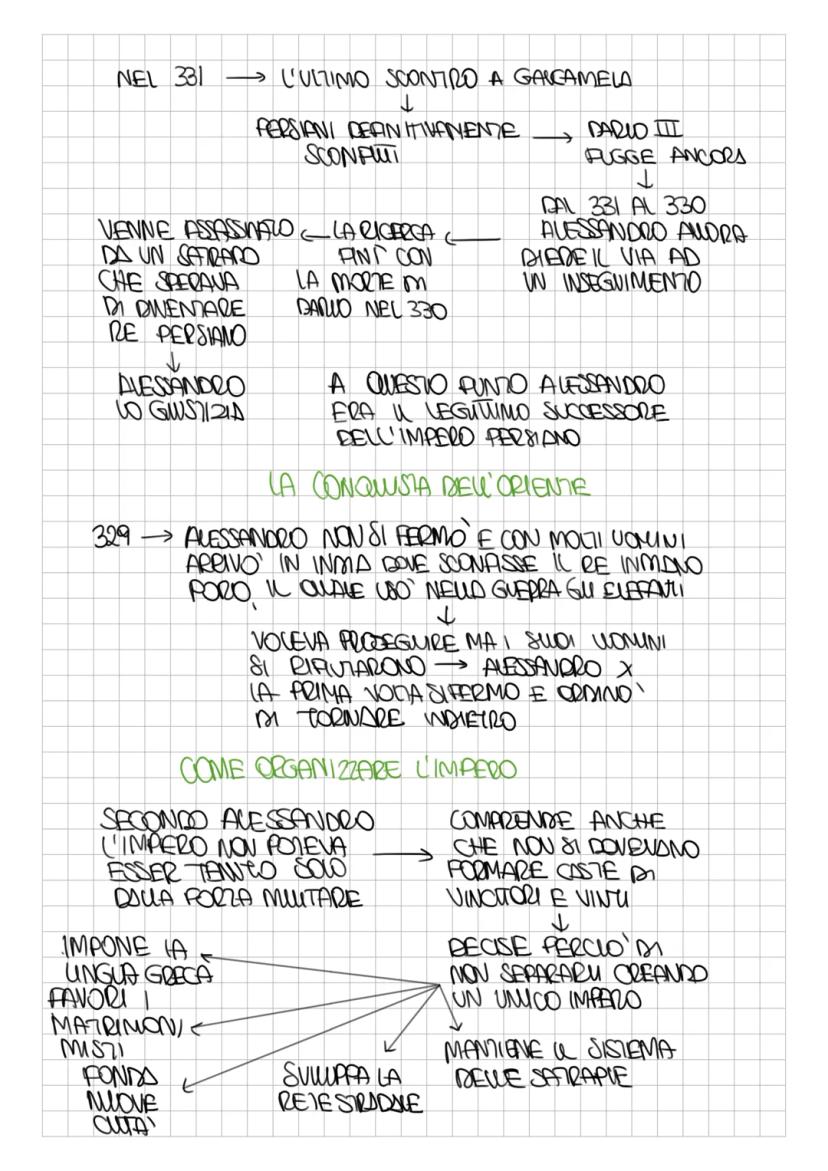 NEL 331 → L'ULTIMO SCONTRO A GAUGAMELA
↓
PERSIANI DEFINITIVAMENTE → DARIO III
SCONFITTI
FUGGE ANCORA
↓
DAL 331 AL 330
ALESSANDRO ALLORA
DIEDE IL VIA AD
UN INSEGUIMENTO
←
LA RICERCA
FINÌ CON
LA MORTE DI
DARIO NEL 330
←
VENNE ASSASSINATO
DA UN SATRAPO
CHE SPERAVA
DI DIVENTARE
RE PERSIANO
↓
ALESSANDRO
LO GIUSTIZIA
A QUESTO PUNTO ALESSANDRO
ERA IL LEGITTIMO SUCCESSORE
DELL'IMPERO PERSIANO
LA CONQUISTA DELL'ORIENTE
329 → ALESSANDRO NON SI FERMÒ E CON MOLTI UOMINI
ARRIVO' IN INDIA DOVE SCONFISSE IL RE INDIANO
PORO, IL QUALE USO' NELLA GUERRA GLI ELEFANTI
↓
VOLEVA PROSEGUIRE MA I SUOI UOMINI
SI RIFIUTARONO → ALESSANDRO X
LA PRIMA VOLTA SI FERMO E ORDINO'
DI TORNARE INDIETRO
COME ORGANIZZARE L'IMPERO
SECONDO ALESSANDRO
L'IMPERO NON POTEVA
ESSER TENUTO SOLO
DALLA FORZA MILITARE
→
COMPRENDE ANCHE
CHE NON SI DOVEVANO
FORMARE CASTE DI
VINCITORI E VINTI
↓
DECISE PERCIO' DI
NON SEPARARLI CREANDO
UN UNICO IMPERO
IMPONE LA
LINGUA GRECA
FAVORÌ I
MATRIMONI
MISTI
FONDA
NUOVE
CITTA'
SVILUPPA LA
RETE STRADALE
MANTIENE IL SISTEMA
DELLE SATRAPIE